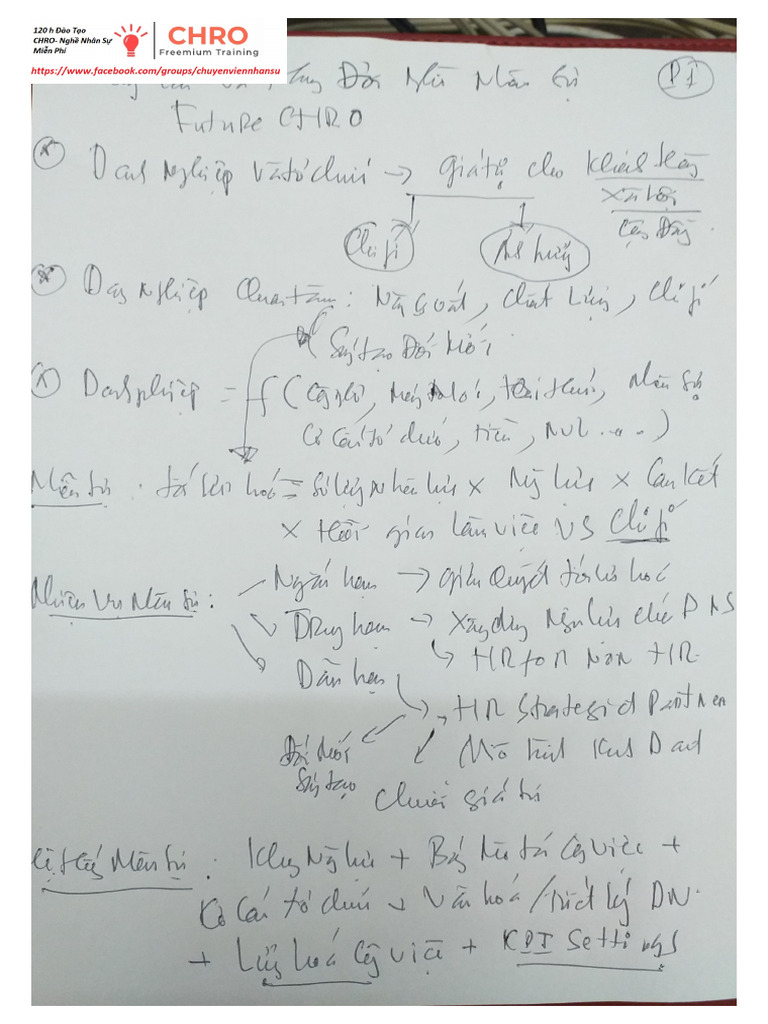 120 h Đào Tạo
CHRO- Nghề Nhân Sự
Miễn Phí
CHRO
Freemium Training
https://www.facebook.com/groups/chuyenviennhansu
Nhân Sự
P1
Future CHRO
Doanh Nghiệp và tổ chức → giá trị cho Khách hàng
Xã hội
Cộng Đồng
Chi phí
Ảnh hưởng
Doanh Nghiệp Quan tâm: Năng suất, Chất lượng, Chi phí
Sáng tạo Đổi Mới
Doanh nghiệp = f (Công nghệ, máy móc, tri thức, Nhân sự
Cơ cấu tổ chức, tiền, NVL ...)
Nhân sự: tối ưu hoá = Số lượng Nhân lực x Năng lực x Cam kết
x thời gian làm việc VS Chi phí
Nhiệm vụ Nhân sự:
Ngắn hạn → giải quyết tối ưu hoá
Trung hạn → Xây dựng Năng lực cho P NS
→ HR for Non HR
Dài hạn
→ HR Strategic Partner
Đổi mới
Sáng tạo
Mô hình Kinh Doanh
Chuỗi giá trị
Hệ thống Nhân sự: Khung Năng lực + Bảng Mô tả Công việc +
Cơ cấu tổ chức → Văn hoá / Triết lý DN
+ Lượng hoá Công việc + KPI Settings